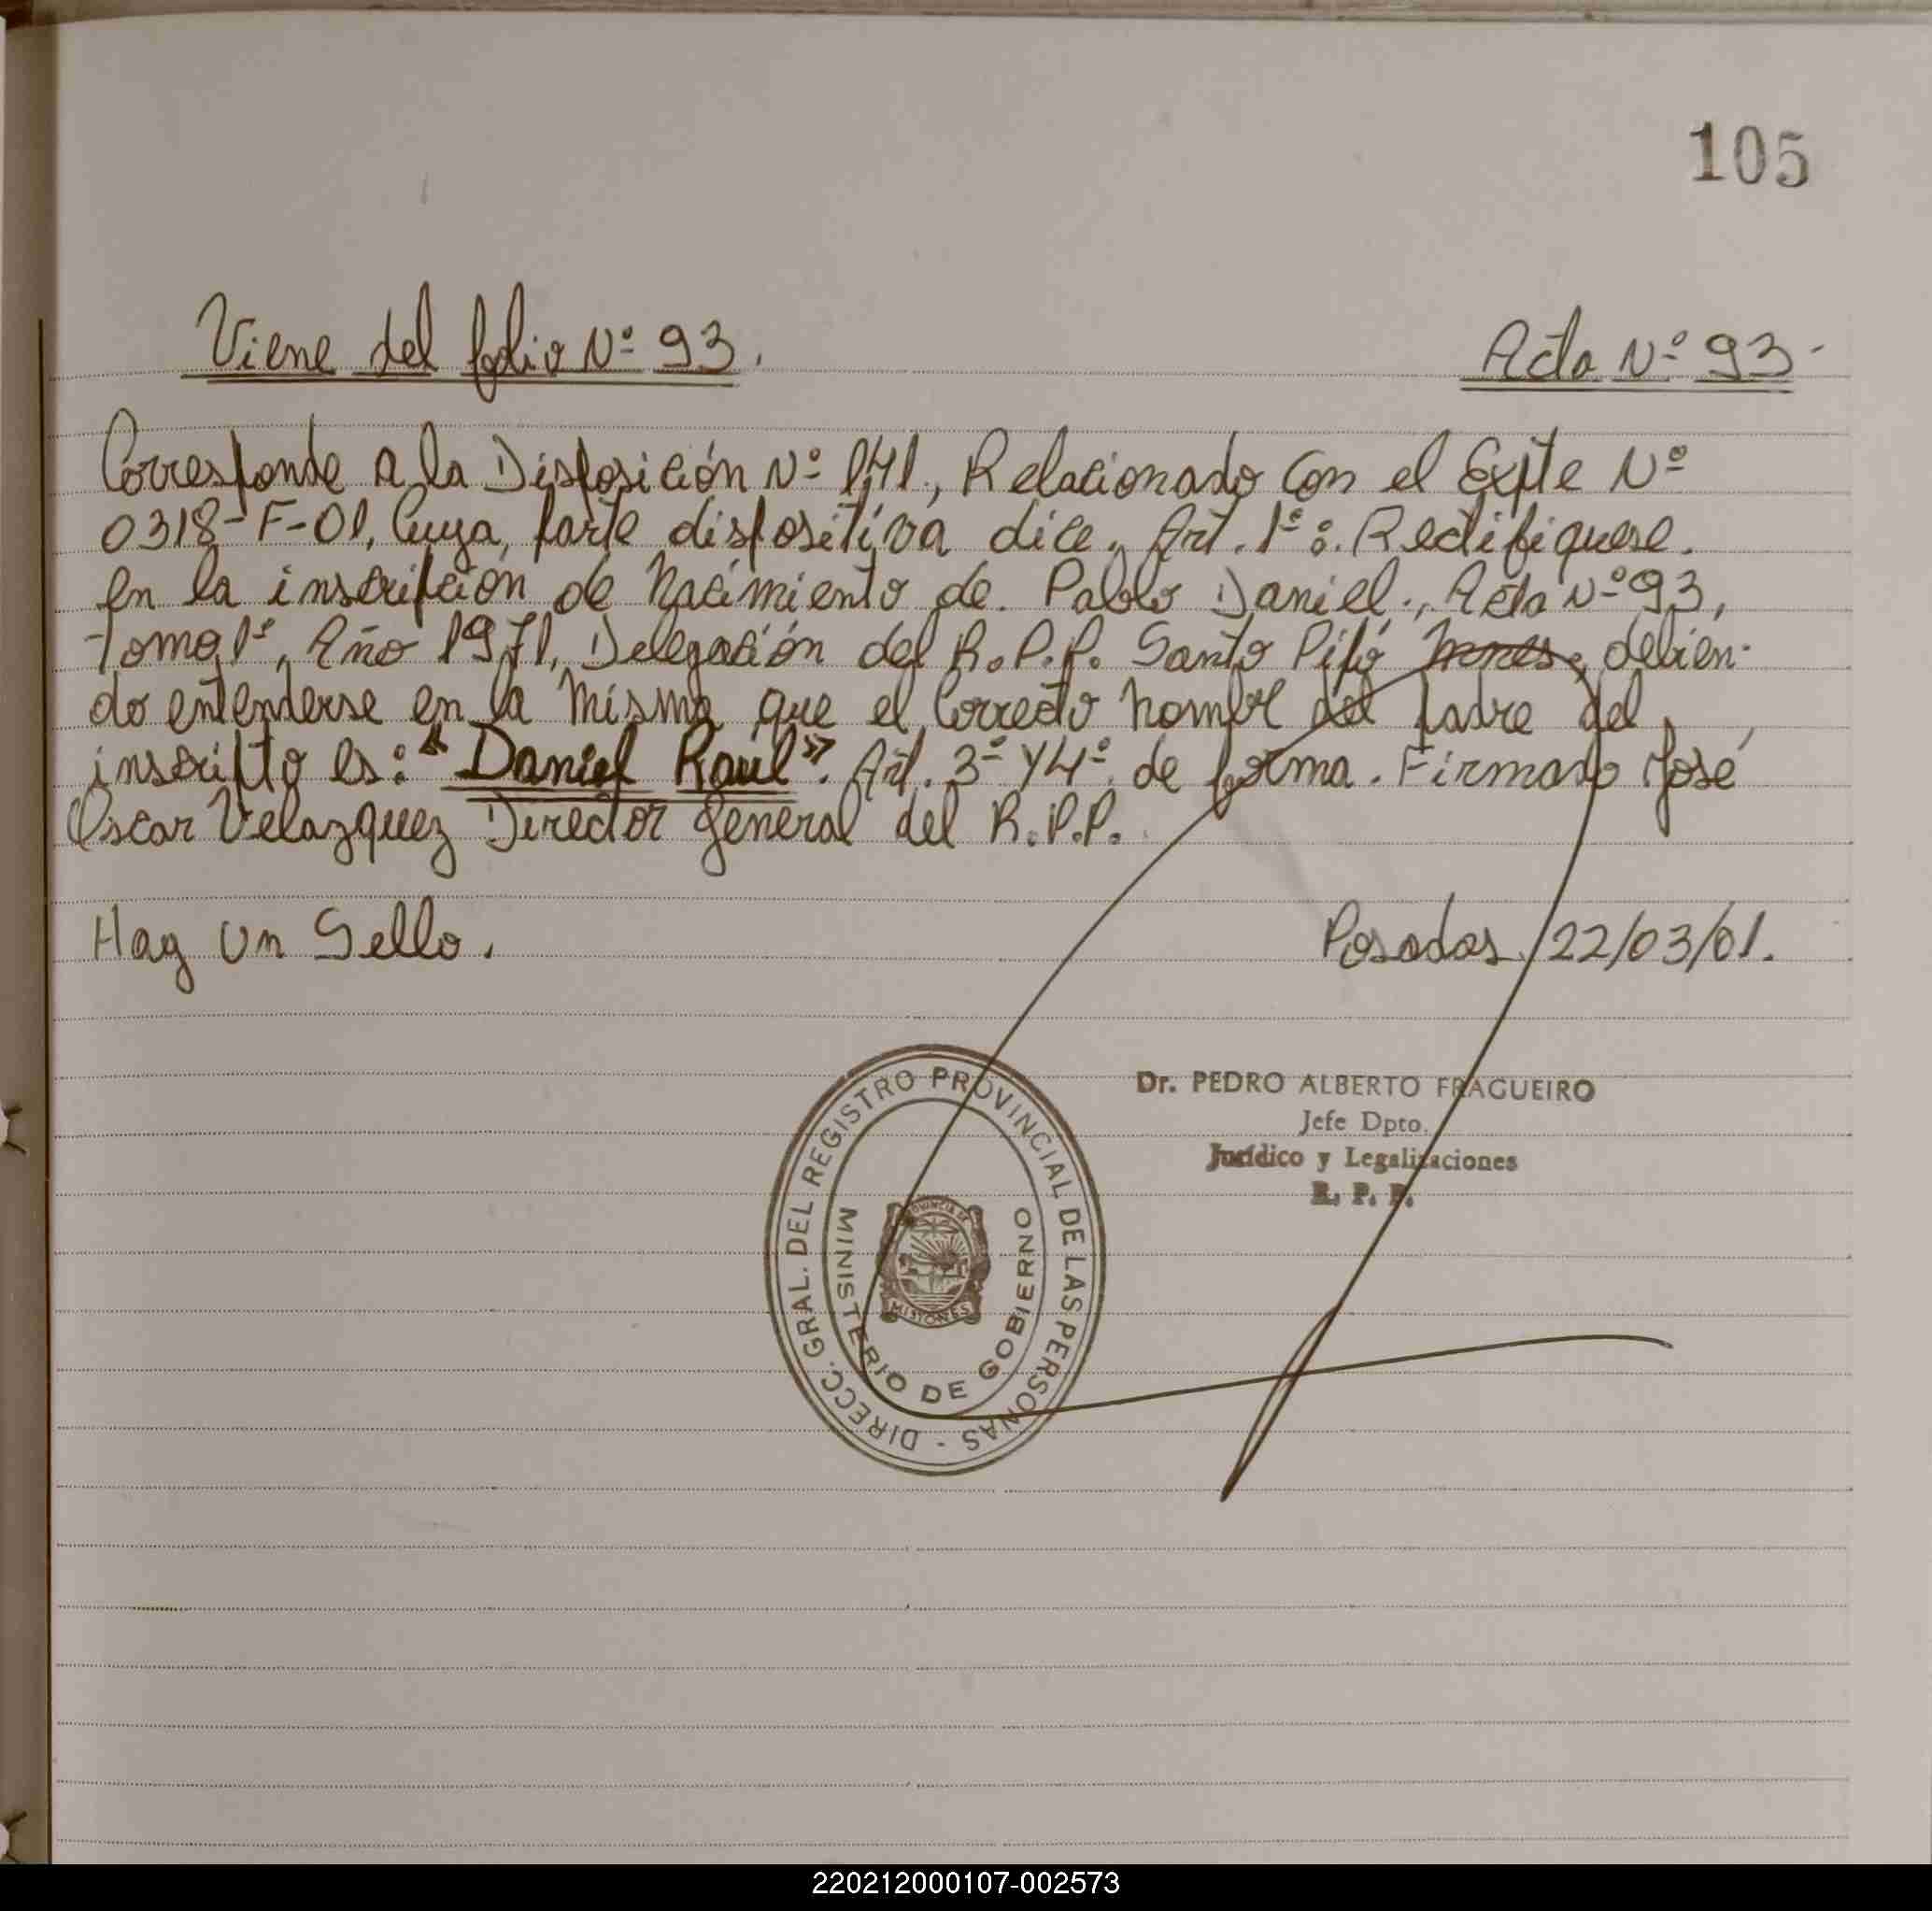 105
Viene del folio Nº 93.
Acta Nº 93-
Corresponde a la Disposición Nº 141, Relacionado Con el Expte Nº
0318-F-01, Cuya, parte dispositiva dice, Art. 1º: Rectifiquese.
en la inscripción de Nacimiento de. Pablo Daniel., Acta Nº 93,
Tomo 1º, Año 1971, Delegación del R.P.P. Santo Pipó debien-
do entenderse en la Misma que el Correcto Nombre del Padre del
inscripto es: "Daniel Raúl". Art. 3º y 4º de forma. Firmado José
Oscar Velazquez Director General del R.P.P.
Hay Un Sello.
Posadas, 22/03/01.
Dr. PEDRO ALBERTO FRAGUEIRO
Jefe Dpto.
Jurídico y Legalizaciones
R. P. P.
DIRECC. GRAL. DEL REGISTRO PROVINCIAL DE LAS PERSONAS -
MINISTERIO DE GOBIERNO
PROVINCIA DE
MISIONES
220212000107-002573